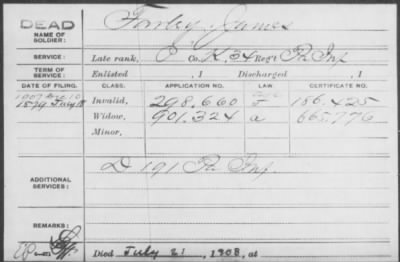 DEAD
NAME OF SOLDIER: Farley, James
SERVICE: Late rank, P Co. K, 34 Reg't Pa Inf
TERM OF SERVICE: Enlisted , 1 Discharged , 1
DATE OF FILING. CLASS. APPLICATION NO. LAW CERTIFICATE NO.
1879 July Invalid, 298.660 186.425
Widow, 901.324 a 665.776
Minor,
ADDITIONAL SERVICES: D 191 Pa Inf
REMARKS:
Died July 21, 1908, at